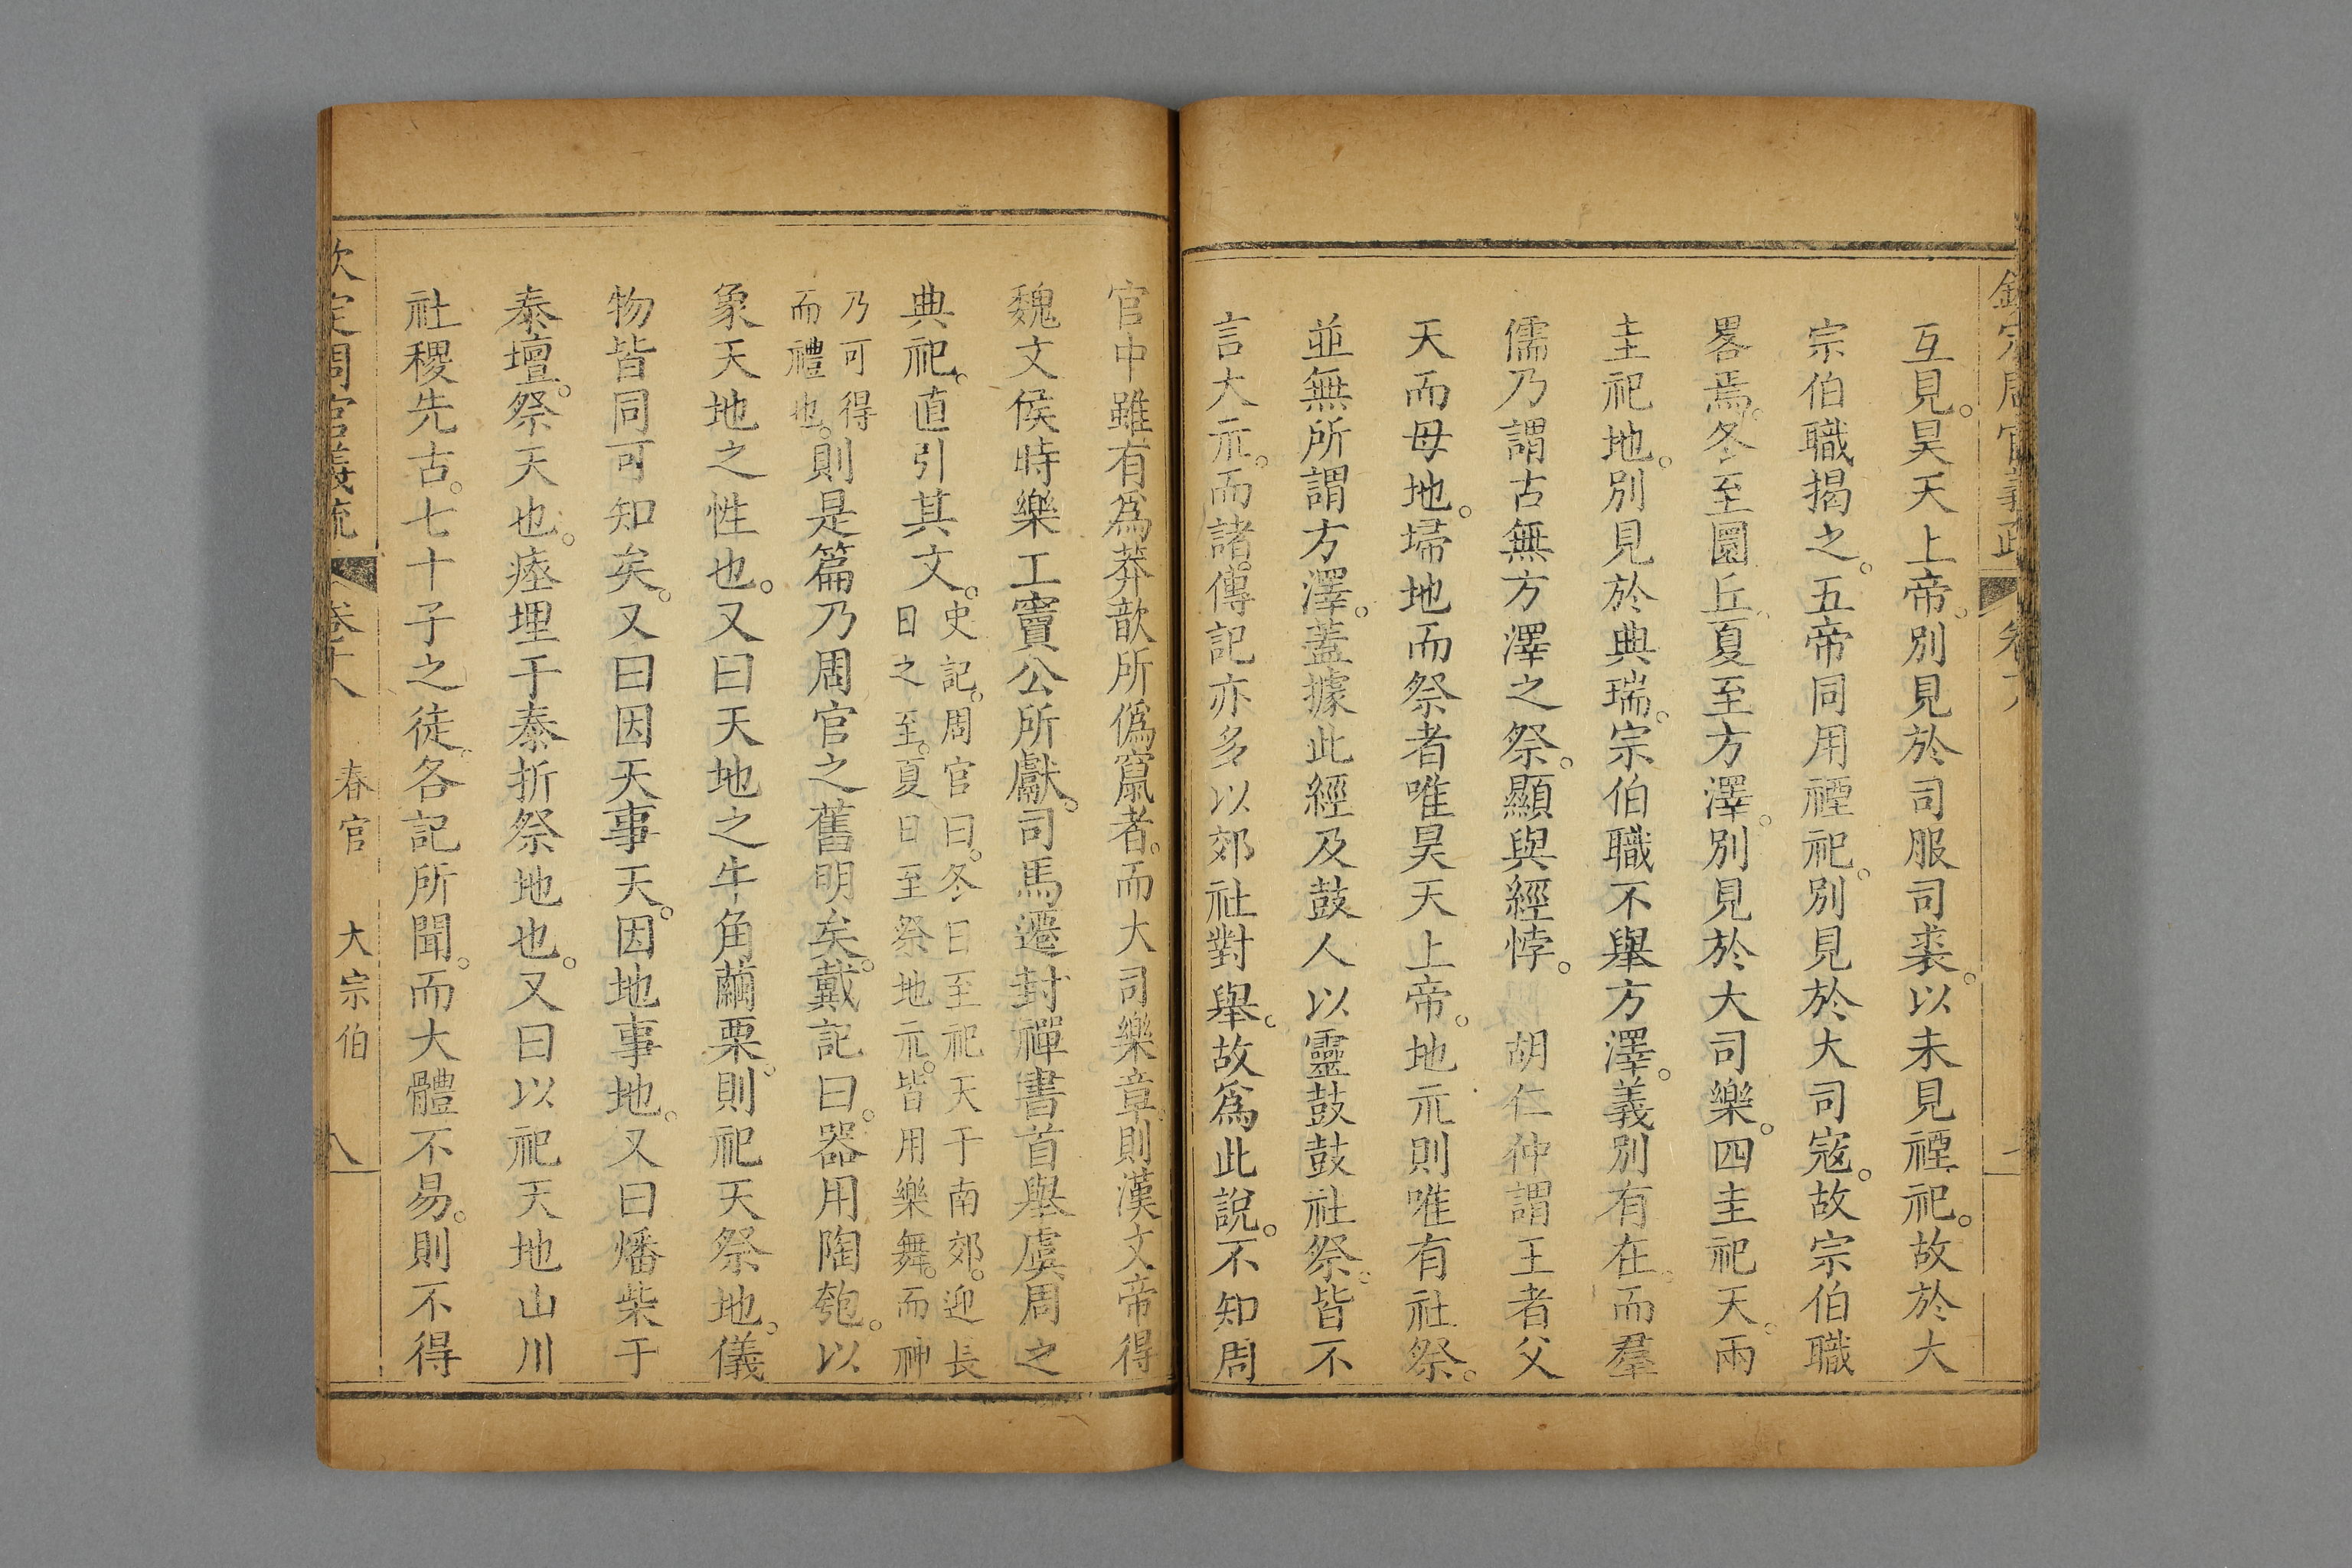 欽定周官義疏 卷十八
互見。昊天上帝。別見於司服司裘。以未見禋祀。故於大
宗伯職揭之。五帝同用禋祀。別見於大司寇。故宗伯職
畧焉。冬至圜丘。夏至方澤。別見於大司樂。四圭祀天。兩
圭祀地。別見於典瑞。宗伯職不舉方澤。義別有在。而羣
儒乃謂古無方澤之祭。顯與經悖。 胡仁仲謂王者父
天而母地。埽地而祭者唯昊天上帝。地示則唯有社祭。
並無所謂方澤。蓋據此經及鼓人以靈鼓鼓社祭。皆不
言大示。而諸傳記亦多以郊社對舉。故爲此說。不知周
官中雖有爲莽歆所僞竄者。而大司樂章。則漢文帝得
魏文侯時樂工竇公所獻。司馬遷封禪書首舉虞周之
典祀。直引其文。史記。周官曰。冬日至祀天于南郊。迎長
日之至。夏日至祭地示。皆用樂舞。而神
乃可得
而禮也。則是篇乃周官之舊明矣。戴記曰。器用陶匏。以
象天地之性也。又曰天地之牛角繭栗。則祀天祭地。儀
物皆同可知矣。又曰因天事天。因地事地。又曰燔柴于
泰壇。祭天也。瘞埋于泰折祭地也。又曰以祀天地山川
社稷先古。七十子之徒。各記所聞。而大體不易。則不得
欽定周官義疏 卷十八 春官 大宗伯 八